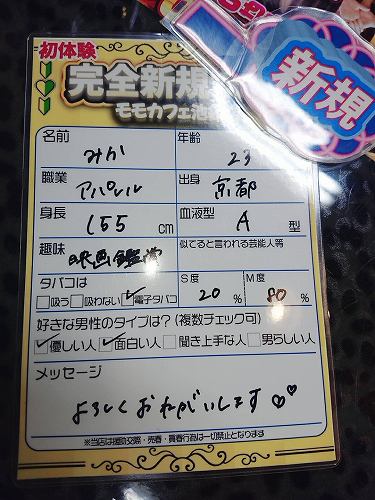 初体験
完全新規
モモカフェ池
新規
名前 みか 年齢 23
職業 アパレル 出身 京都
身長 155 cm 血液型 A 型
趣味 映画鑑賞 似てると言われる芸能人等
タバコは S度 M度
□吸う □吸わない ☑電子タバコ 20 % 80 %
好きな男性のタイプは?(複数チェック可)
☑優しい人 ☑面白い人 □聞き上手な人 □男らしい人
メッセージ
よろしくおねがいします♡♡
※当店は援助交際・売春・買春行為は一切禁止となります